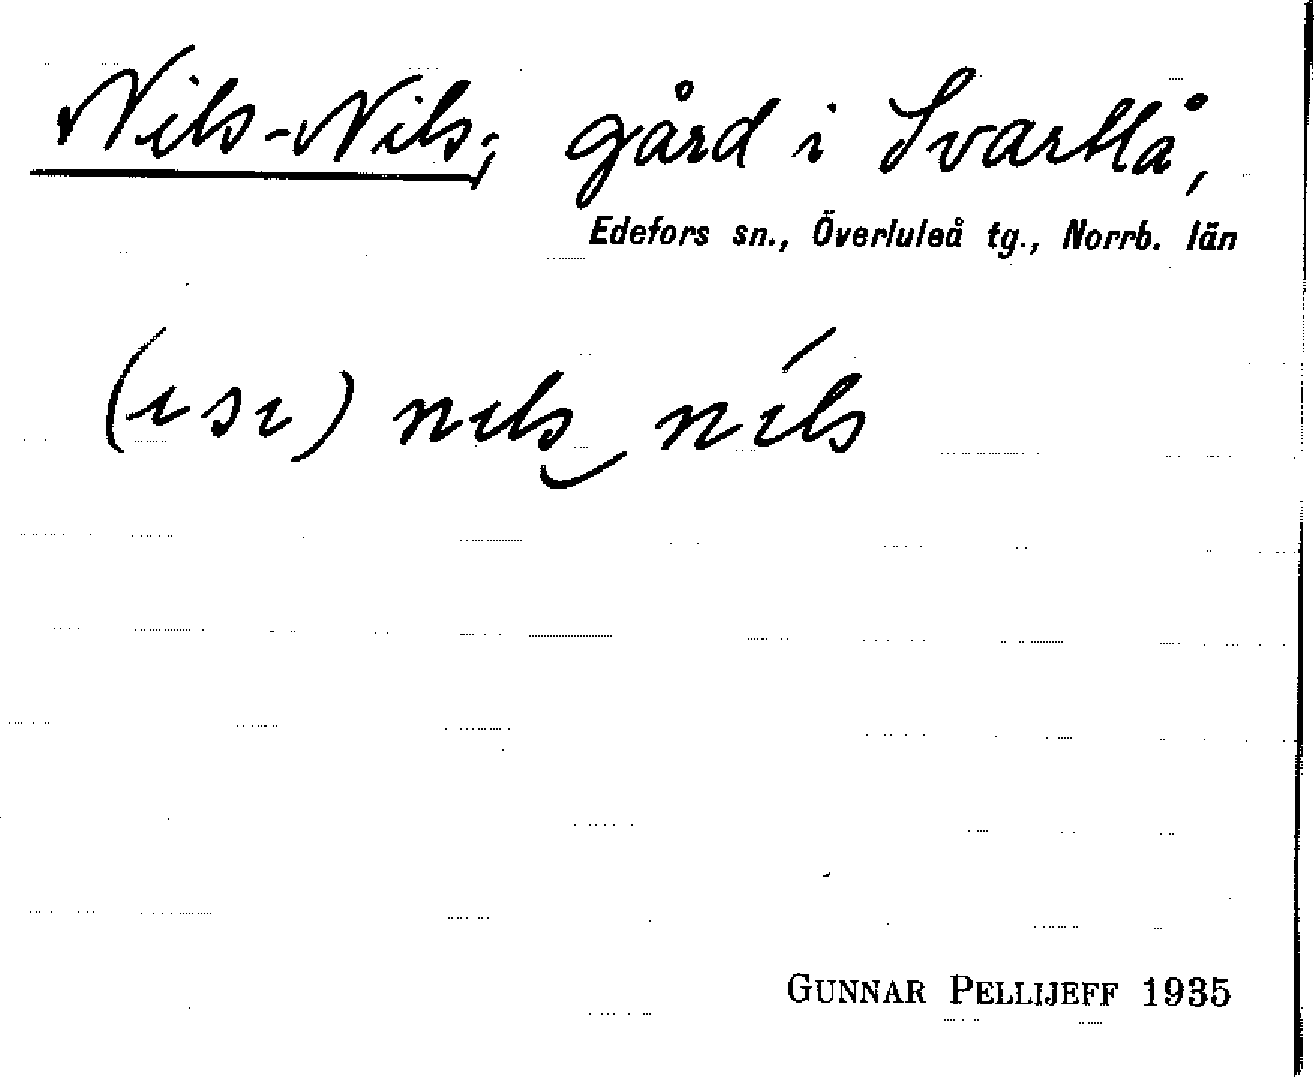 Nils-Nils, gård i Svartlå,
Edefors sn., Överluleå tg., Norrb. län
nils níls
GUNNAR PELLIJEFF 1935